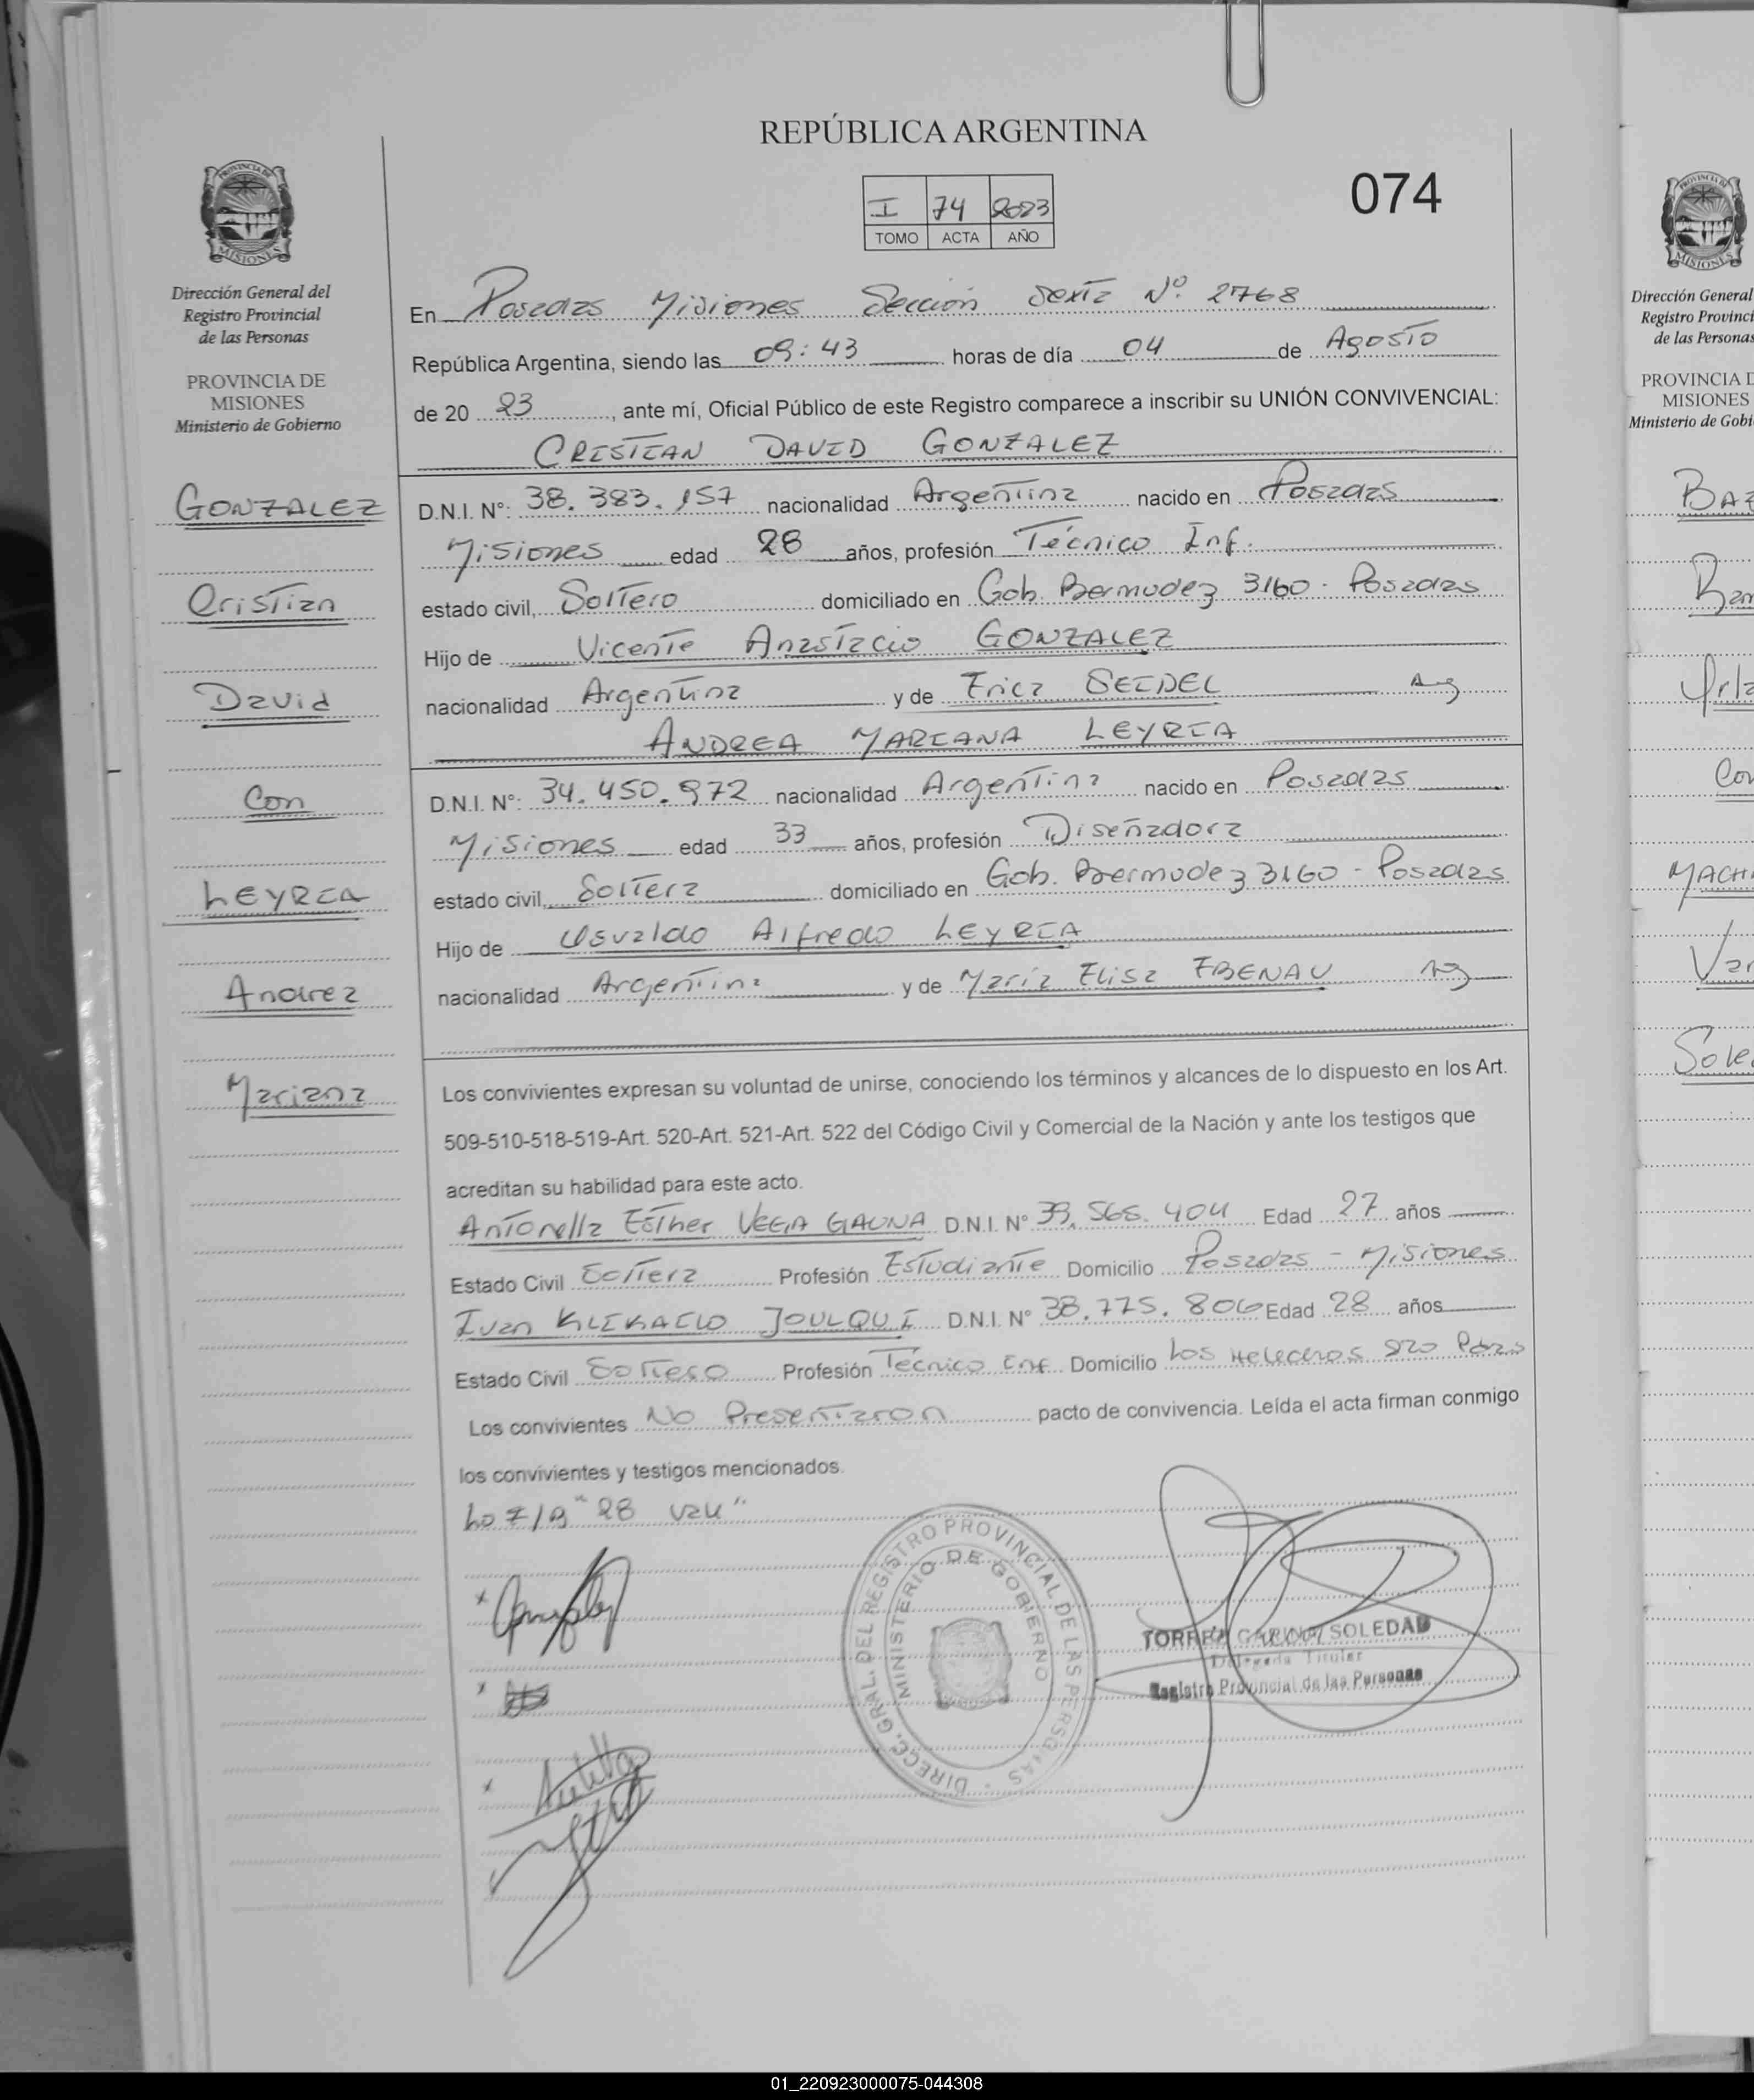 REPÚBLICA ARGENTINA
I 74 2023
TOMO ACTA AÑO
074
PROVINCIA DE
MISIONES
Dirección General del
Registro Provincial
de las Personas
PROVINCIA DE
MISIONES
Ministerio de Gobierno
GONZALEZ
Cristian
David
Con
LEYRIA
Andrea
Mariana
En Posadas Misiones Sección Sexta Nº. 2768
República Argentina, siendo las 09:43 horas de día 04 de Agosto
de 20 23, ante mí, Oficial Público de este Registro comparece a inscribir su UNIÓN CONVIVENCIAL:
CRISTIAN DAVID GONZALEZ
D.N.I. Nº: 38.383.157 nacionalidad Argentina nacido en Posadas
Misiones edad 28 años, profesión Técnico Inf.
estado civil, Soltero domiciliado en Gob. Bermudez 3160 - Posadas
Hijo de Vicente Anastacio GONZALEZ
nacionalidad Argentina y de Erica SEIDEL Arg
ANDREA MARIANA LEYRIA
D.N.I. Nº: 34.450.972 nacionalidad Argentina nacido en Posadas
Misiones edad 33 años, profesión Diseñadora
estado civil, Soltera domiciliado en Gob. Bermudez 3160 - Posadas
Hijo de Osvaldo Alfredo LEYRIA
nacionalidad Argentina y de María Elisa EBENAU Arg
Los convivientes expresan su voluntad de unirse, conociendo los términos y alcances de lo dispuesto en los Art.
509-510-518-519-Art. 520-Art. 521-Art. 522 del Código Civil y Comercial de la Nación y ante los testigos que
acreditan su habilidad para este acto.
Antonella Esther VEGA GAUNA D.N.I. Nº 39.565.404 Edad 27 años
Estado Civil Soltera Profesión Estudiante Domicilio Posadas - Misiones
Ivan JOULQUI D.N.I. Nº 38.775.806 Edad 28 años
Estado Civil Soltero Profesión Técnico Inf Domicilio Los Helechos Pdas
Los convivientes No Presentaron pacto de convivencia. Leída el acta firman conmigo
los convivientes y testigos mencionados.
"28 Vale"
DIRECC. GRAL. DEL REGISTRO PROVINCIAL DE LAS PERSONAS
MINISTERIO DE GOBIERNO
TORRES SOLEDAD
Delegada Titular
Registro Provincial de las Personas
Dirección General
Registro Provinci
de las Personas
PROVINCIA D
MISIONES
Ministerio de Gobi
Con
MACHI
Sole
01_220923000075-044308